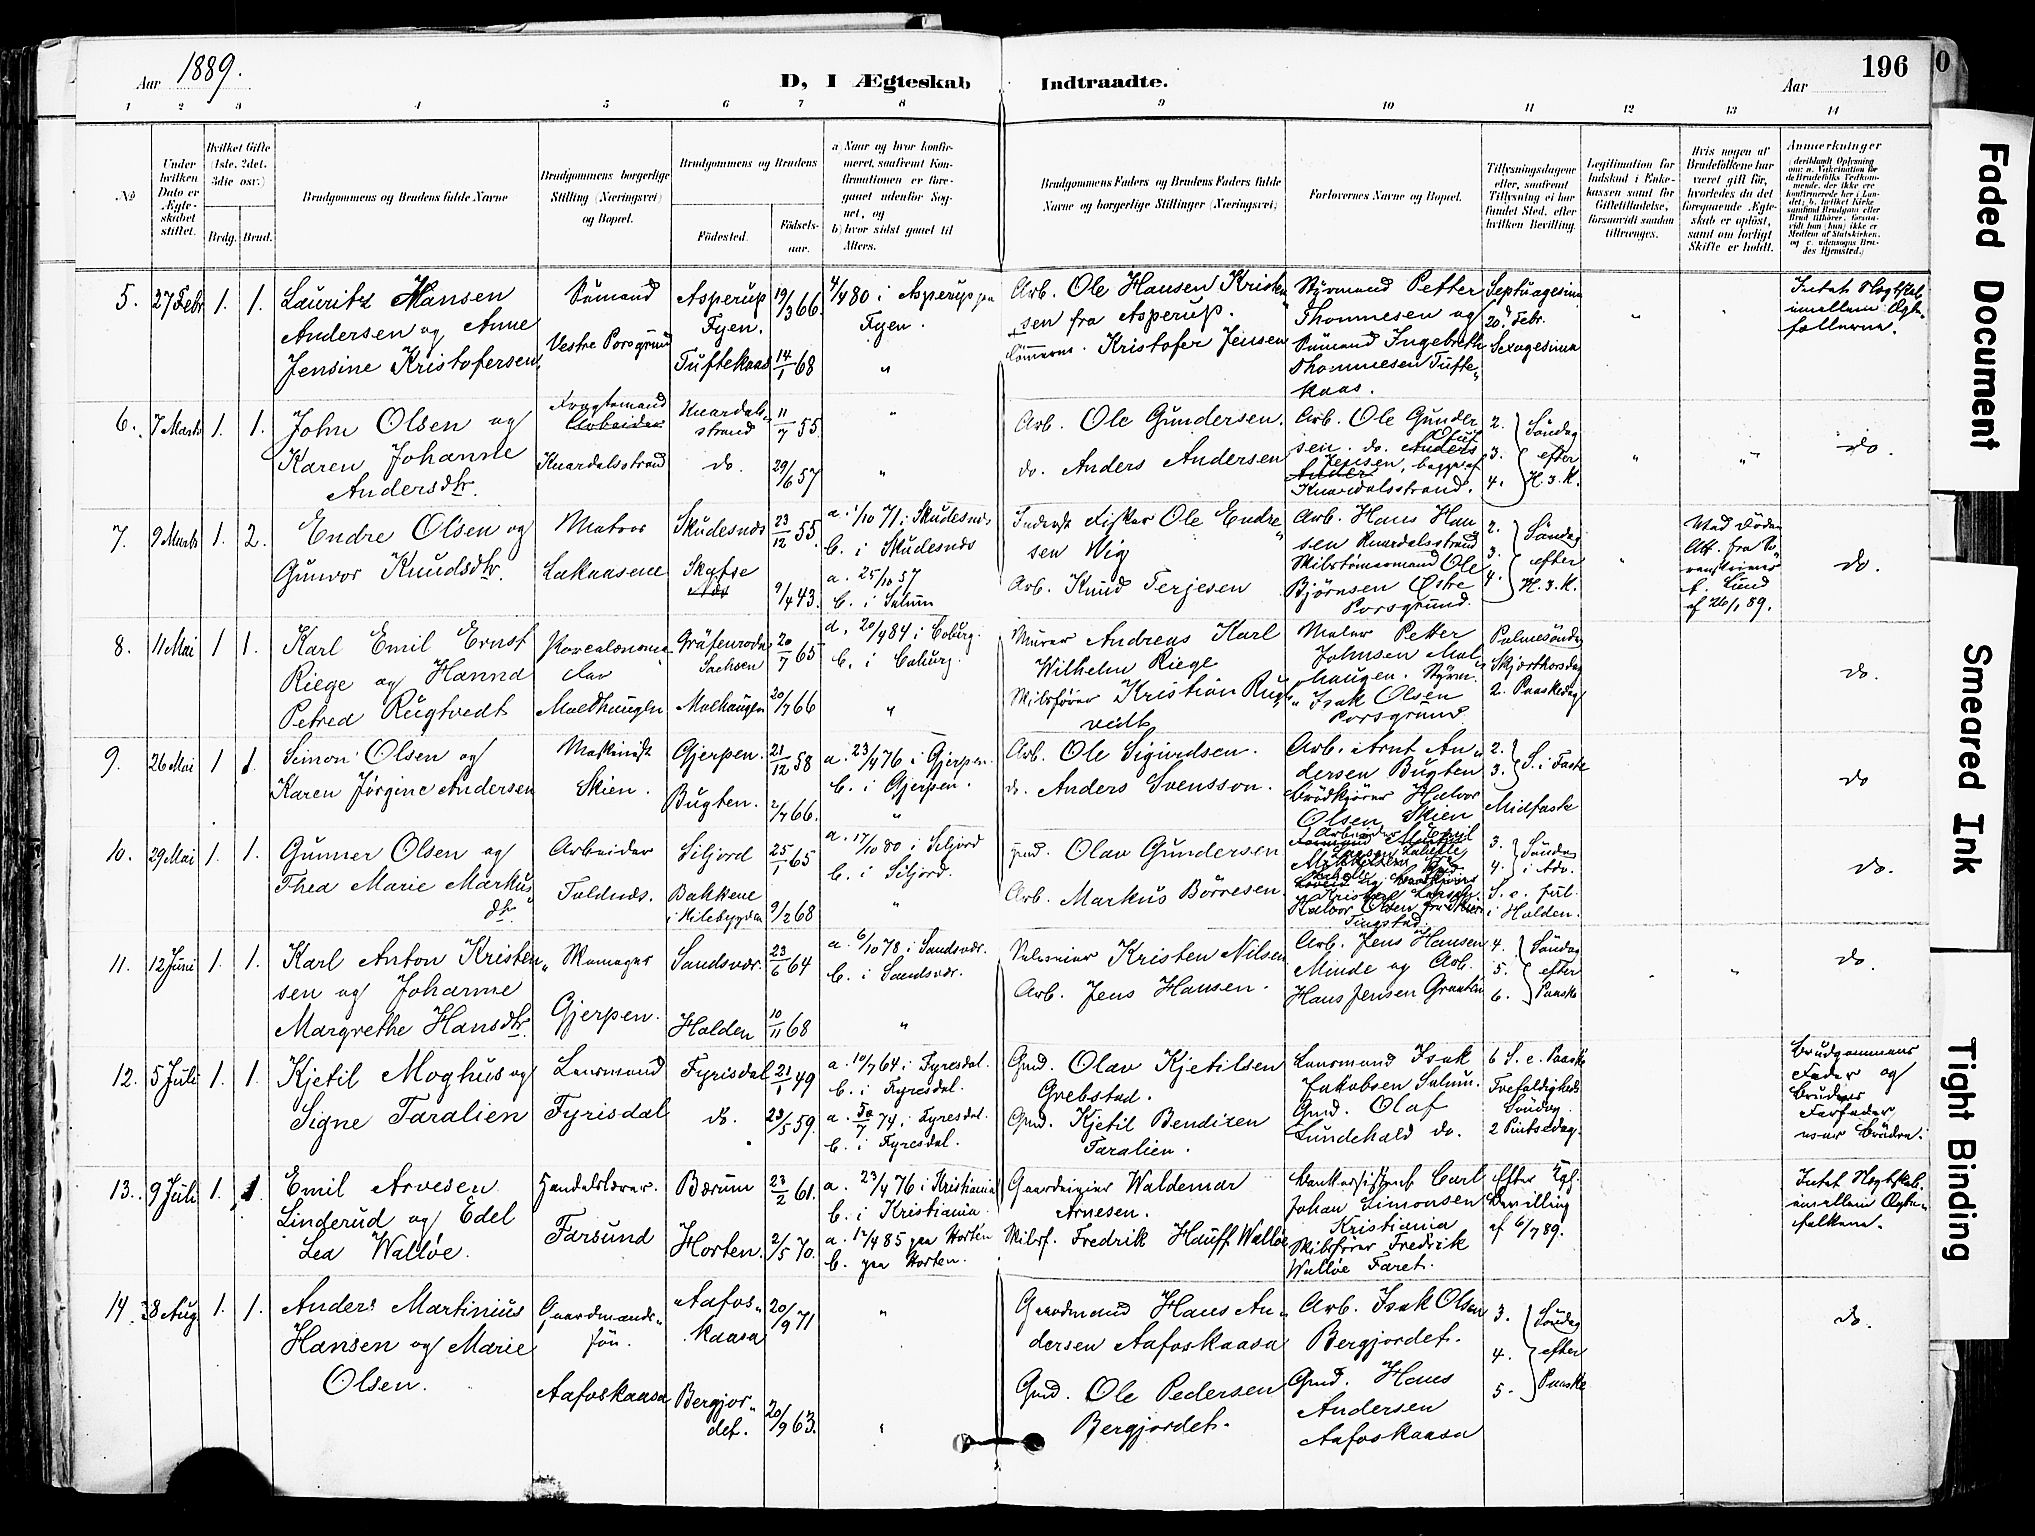 Aar 1889.
D, I Ægteskab Indtraadte.
Aar
196
0
1 2 3 4 5 6 7 8 9 10 11 12 13 14
No
Under hvilken Dato er Ægteskabet stiftet.
Hvilket Gifte (1ste, 2det, 3die osv.)
Brdg. Brud.
Brudgommens og Brudens fulde Navne
Brudgommens borgerlige Stilling (Næringsvei) og Bopæl.
Brudgommens og Brudens
Fødested.
Fødselsaar.
a) Naar og hvor konfirmeret, saafremt Konfirmationen er foregaaet udenfor Sognet, og
b) hvor sidst gaaet til Alters.
Brudgommens Faders og Brudens Faders fulde Navne og borgerlige Stillinger (Næringsvei)
Forlovernes Navne og Bopæl.
Tillysningsdagene eller, saafremt Tillysning ei har fundet Sted, efter hvilken Bevilling.
Legitimation for Indskud i Enkekassen samt for Giftetilladelse, forsaavidt saadan tiltrænges.
Hvis nogen af Brudefolkene har været gift før, hvorledes da det foregaaende Ægteskab er opløst, samt om lovligt Skifte er holdt.
Anmærkninger
5. 27 Febr 1. 1. Lauritz Hansen
Andersen og Anne
Jensine Kristofersen.
Sømand
Vestre Porsgrund
Asperup
Fyen.
Tuftekaas
19/3 66.
14/1 68
4/4 80 i Asperup paa
Fyen.
"
Arb. Ole Hansen Kristen
sen fra Asperup.
Tømmerm. Kristofer Jensen
Styrmand Petter
Thommesen og
Sømand Ingebreth
Thommesen Tufte-
kaas.
Septuagesima
20d Febr.
Sexagesima
Intet Slægtskab
imellem Ægte-
fællerne.
6. 7 Marts 1. 1. John Olsen og
Karen Johanne
Andersdtr.
Fragtemand
Arbeider
Knardalsstrand
Knardals-
strand
do.
11/7 55
29/6 57
"
"
Arb. Ole Gundersen.
do. Anders Andersen
Arb. Ole Gunder
sen. do. Anders
Jensen, begge af
Knardalsstrand.
2.
3. Søndag efter
4. H. 3. K.
do.
7. 9 Marts 1. 2. Endre Olsen og
Gunvor Knudsdtr.
Matros
Lakaasene
Skudesnæs
23/12 55.
9/4 43.
a. 1/10 71 i Skudesnæs
b. i Skudesnæs
a. 25/10 57
b. i Solum
Fisker Ole Endre
sen Wig
Arb. Knud Terjesen
Arb. Hans Han
sen Knardalsstrand
Skibstømmermand Ole
Bjørnsen Østre
Porsgrund.
2.
3. Søndag efter
4. H. 3. K.
Ved Døden
Att. fra
Lund
af 26/1 89.
do.
8. 11 Mai 1 1. Karl Emil Ernst
Riege og Hanna
Petrea Rugtvedt
Molhaugen
Gräfenroda
Sachsen
Molhaugen
20/7 65
20/7 66
a. 20/4 84 i Coburg.
b. i Coburg.
"
Murer Andreas Karl
Wilhelm Riege
Skibsfører Kristian Rugt-
vedt
Maler Petter
Johnsen Mol
haugen. Styrm.
Isak Olsen
Porsgrund
Palmesøndag
Skjærthorsdag
2. Paaskedag
do.
9. 26 Mai 1 1. Simon Olsen og
Karen Jørgine Andersen
Maskinist
Skien.
Gjerpen.
Bugten.
21/12 58
2/7 66.
a. 23/4 76 i Gjerpen.
b. i Gjerpen.
"
Arb. Ole Sigurdsen.
do. Anders Svensson.
Arb. Arnt An-
dersen Bugten
Brødkjører Halvor
Olsen Skien
2.
3. S. i Faste
Midfaste
do
10. 29 Mai 1. 1. Gunner Olsen og
Thea Marie Markus
dtr.
Arbeider
Toldnæs.
Siljord
Bakkene
i Hitebygden
25/1 65
9/2 68
a. 17/10 80 i Siljord
b. i Siljord.
"
Gmd. Olav Gundersen
Arb. Markus Börresen.
3. Søndag
4. i Adv.
i Holden.
do.
11. 12 Juni 1. 1. Karl Anton Kristen
sen og Johanne
Margrethe Hansdtr.
Skomager
Gjerpen.
Sandsvær.
Holden
23/6 64
10/11 68
a. 6/10 78 i Sandsvær.
b. i Sandsvær.
"
Selveier Kristen Nilsen
Arb. Jens Hansen.
Arb. Jens Hansen
Minde og Arb.
Hans Jensen Graaten
4. Søndag
5. efter
6. Paaske
do.
12. 5 Juli 1. 1. Kjetil Moghus og
Signe Taralien
Lensmand
Fyrisdal
Fyrisdal
do.
21/1 49
23/5 59.
a. 10/7 64 i Fyresdal.
b. i Fyresdal.
a. 50/7 74 i Fyresdal.
b. i Fyresdal.
Gmd. Olav Kjetilsen
Grebstad.
Gmd. Kjetil Bendixen
Taralien.
Lensmand Isak
Jakobsen Solum.
Gmd. Olaf
Lundekald do.
6 S. e. Paaske
Trefoldigheds
Søndag.
2 Pintsedag.
Brudgommens
Fader og
Brudens
Farfader
vare Brødre.
13. 9 Juli 1. 1. Emil Arvesen
Linderud og Edel
Lea Walløe.
Handelslærer.
Farsund
Bærum
Horten.
23/2 61.
2/5 70.
a. 23/4 76 i Kristiania
b. i Kristiania.
a. 12/4 85 paa Horten
b. paa Horten.
Gaardeier Waldemar
Arnesen.
Skibsf. Fredrik Hauff Walløe
Bankassistent Carl
Johan Simonsen
Kristiania
Skibsfører Fredrik
Walløe Faret.
Efter Kgl.
Bevilling
af 6/7 89.
Intet Slægtskab
imellem Ægte-
folkene.
14. 8 Aug 1. 1. Anders Martinius
Hansen og Marie
Olsen.
Gaardmands-
søn.
Aafoskaasa
Aafos-
kaasa
Bergjor-
det.
20/9 71
20/9 63.
"
"
Gaardmand Hans An-
dersen Aafoskaasa
Gmd. Ole Pedersen
Bergjordet.
Arb. Isak Olsen
Bergjordet.
Gmd. Hans
Andersen
Aafoskaasa
3. Søndag
4. efter
5. Paaske
do.
Faded Document
Smeared Ink
Tight Binding